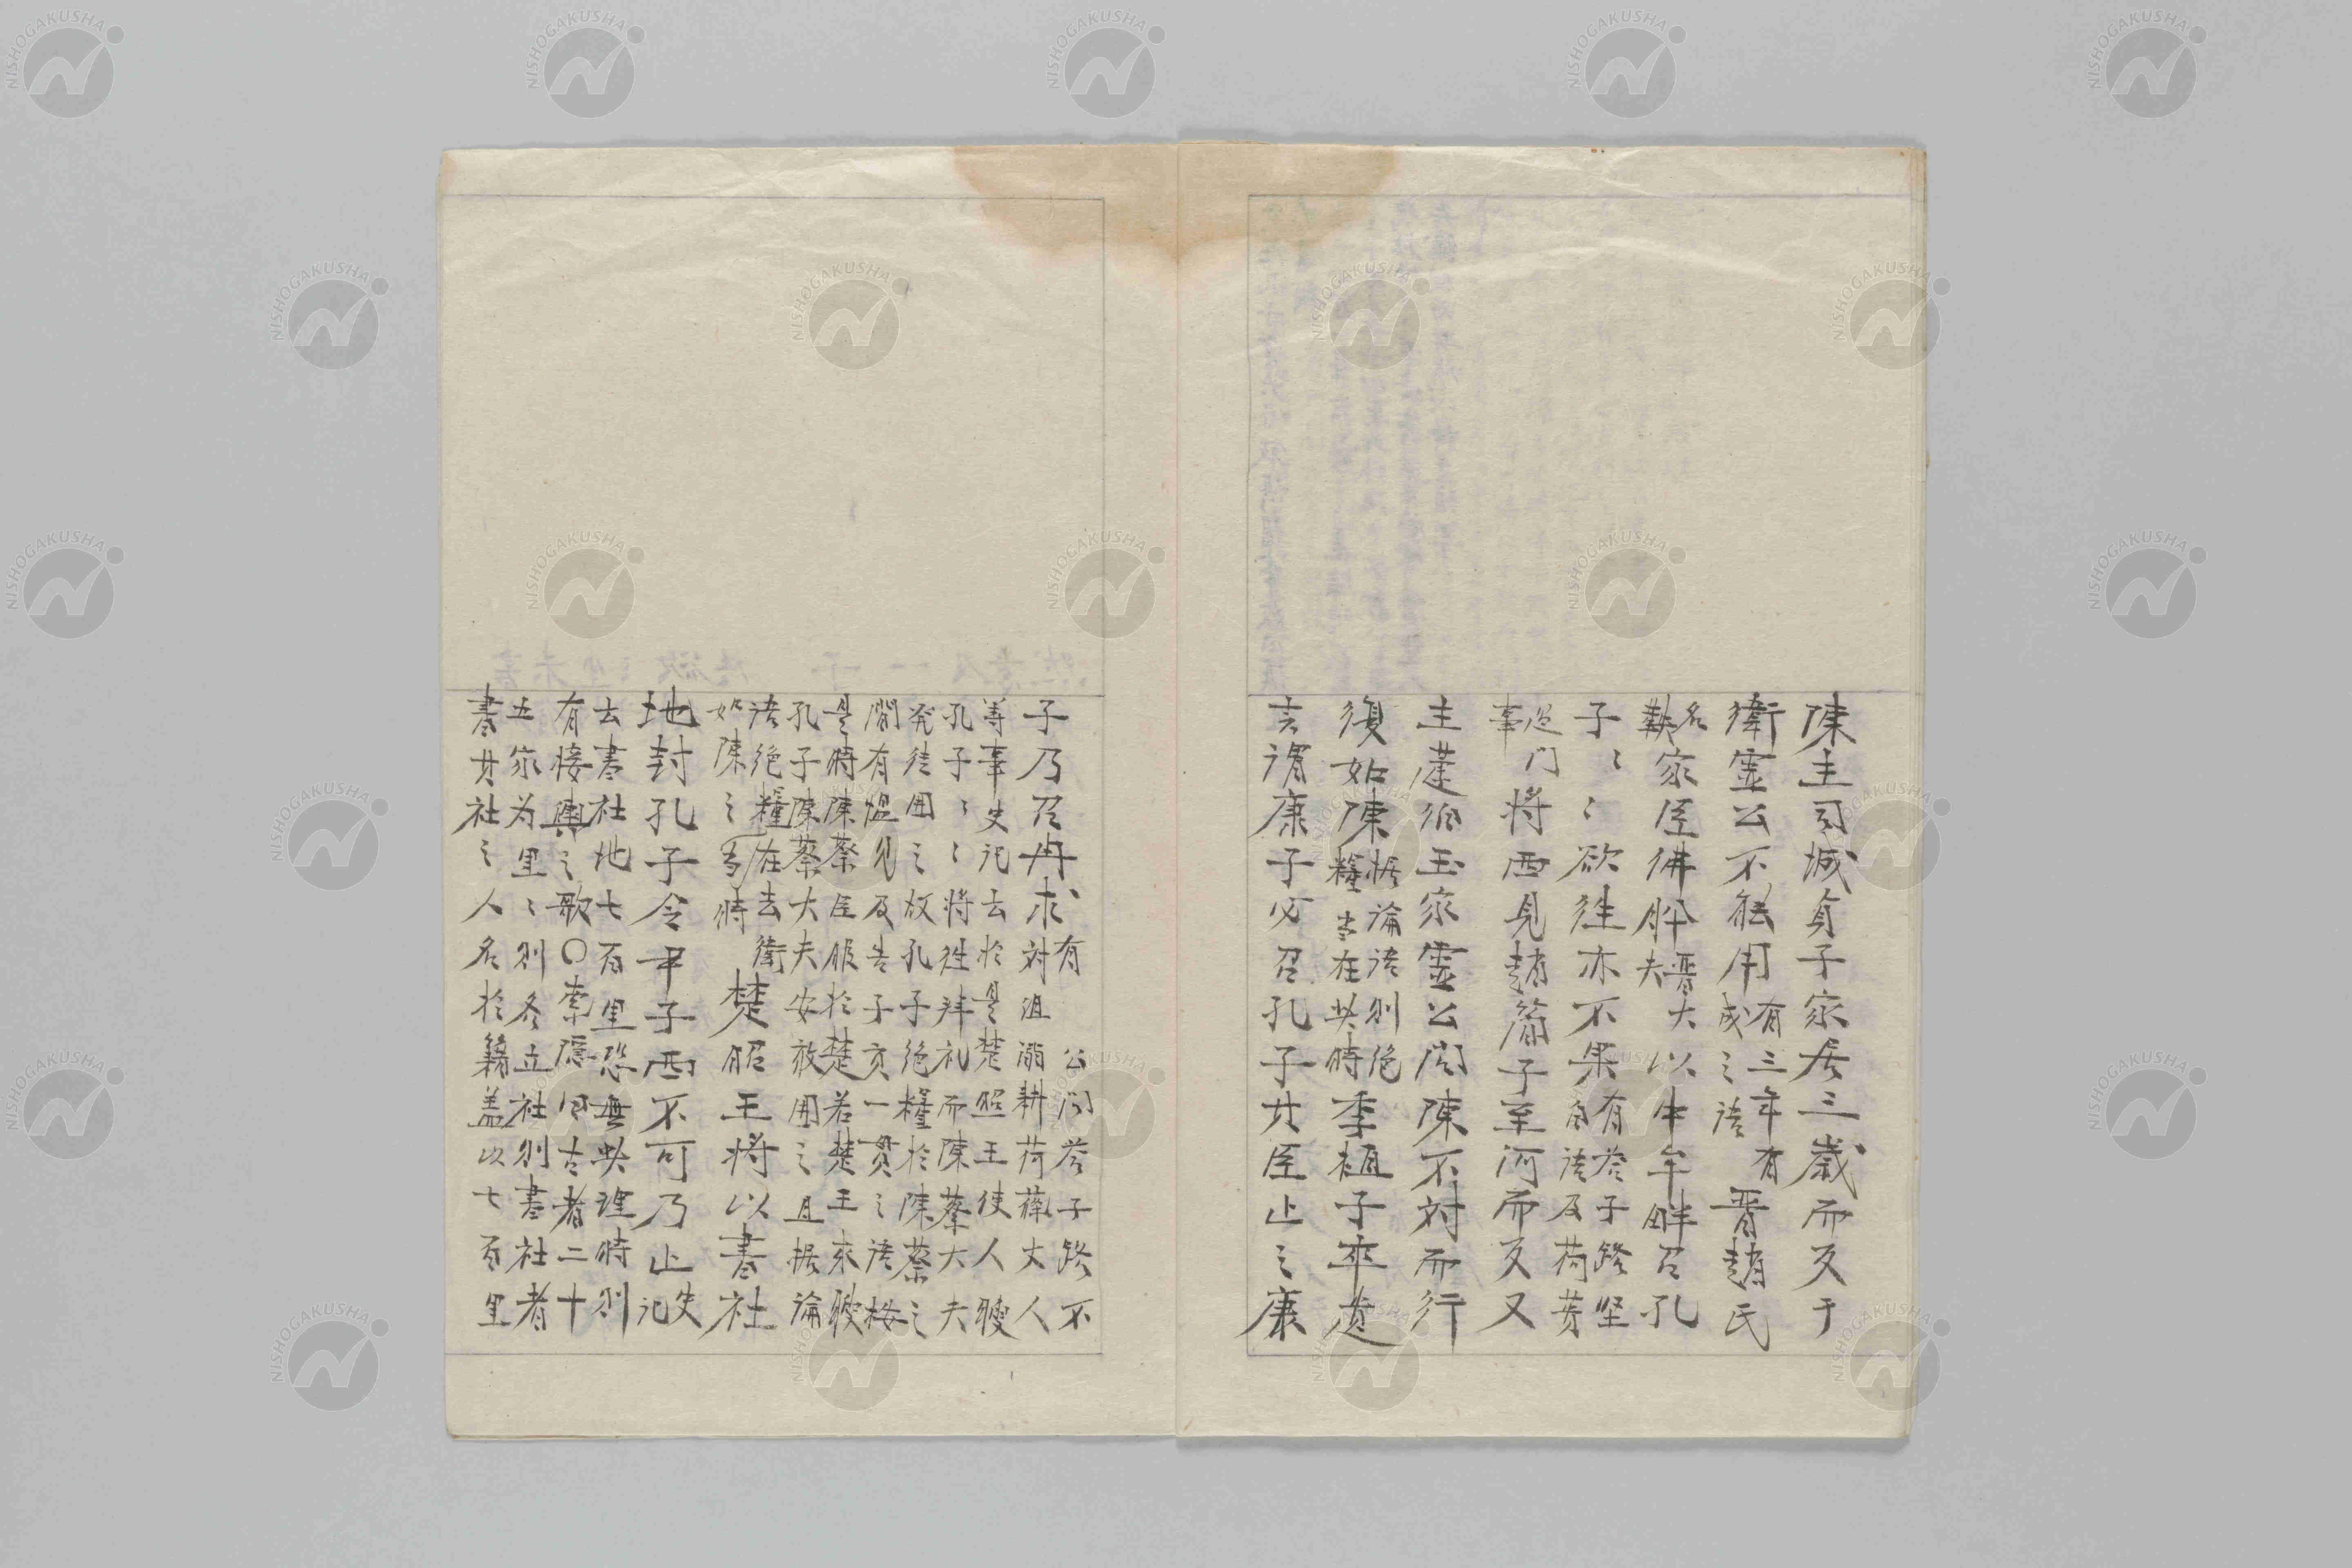 陳主司城貞子家居三歲而反于
衛霊公不能用有三年有
成之语晋趙氏
名
家臣佛肸晋大
夫以中牟畔召孔
子〻〻欲往亦不果有荅子路坚
白语及荷蕢
过门
事将西見趙簡子至河而反又
主蘧伯玉家霊公問陳不対而行
復如陳据論语則绝
糧当在此時季桓子卒遺
言谓康子必召孔子其臣止之康
子乃召冉求有 公問荅子路不
対沮溺耕荷蓧丈人
等事史记云於是楚昭王使人聘
孔子〻〻将往拝礼而陳蔡大夫
発徒囲之故孔子绝糧於陳蔡之
間有愠見及告子贡一贯之语按
是時陳蔡臣服於楚若楚王来聘
孔子陳蔡大夫安敢囲之且据論
语绝糧在去衛
如陳之 時楚昭王将以書社
地封孔子令尹子西不可乃止史
记
云書社地七百里恐無此理時則
有接輿之歌〇索隠曰古者二十
五家为里〻則各立社則書社者
書其社之人名於籍盖以七百里